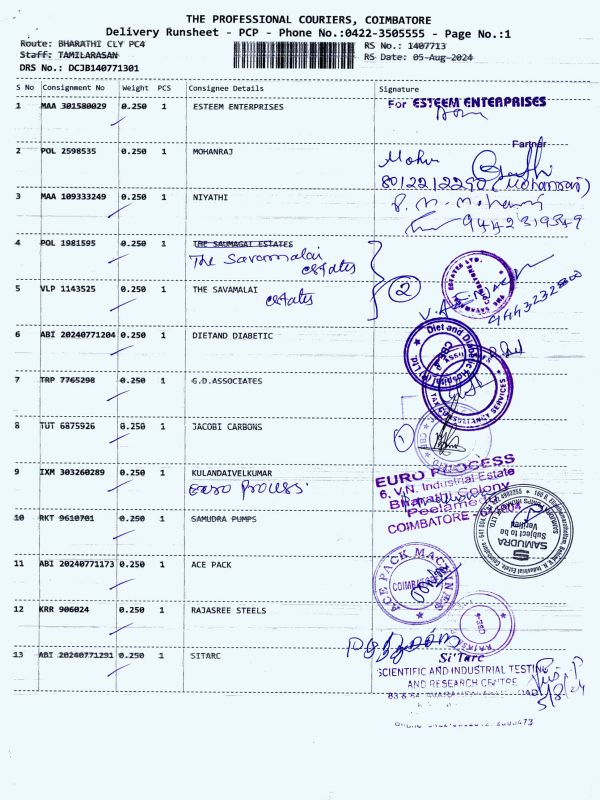 THE PROFESSIONAL COURIERS, COIMBATORE
Delivery Runsheet - PCP - Phone No.:0422-3505555 - Page No.:1
Route: BHARATHI CLY PC4 RS No.: 1407713
Staff: TAMILARASAN RS Date: 05-Aug-2024
DRS No.: DCJB140771301
S No Consignment No Weight PCS Consignee Details Signature
1 MAA 301580029 0.250 1 ESTEEM ENTERPRISES For ESTEEM ENTERPRISES
Partner
2 POL 2598535 0.250 1 MOHANRAJ Mohan
8012212290 (Mohanraj)
3 MAA 109333249 0.250 1 NIYATHI
9442319349
4 POL 1981595 0.250 1 THE SAUMAGAT ESTATES
The Savamalai estates
5 VLP 1143525 0.250 1 THE SAVAMALAI estates 2
6 ABI 20240771204 0.250 1 DIETAND DIABETIC Diet and Diabetic Hospital
7 TRP 7765298 0.250 1 G.D.ASSOCIATES TAX CONSULTANCY SERVICES
8 TUT 6875926 0.250 1 JACOBI CARBONS
9 IXM 303260289 0.250 1 KULANDAIVELKUMAR EURO PROCESS
Euro process
6, V.N. Industrial Estate
Bharathi Colony
Peelamedu
COIMBATORE
10 RKT 9610701 0.250 1 SAMUDRA PUMPS SAMUDRA
Subject to be
Verified
11 ABI 20240771173 0.250 1 ACE PACK ACE PACK MACHINES
COIMBATORE
12 KRR 906024 0.250 1 RAJASREE STEELS
13 ABI 20240771291 0.250 1 SITARC Si'Tarc
SCIENTIFIC AND INDUSTRIAL TESTING
AND RESEARCH CENTRE
5/8/24